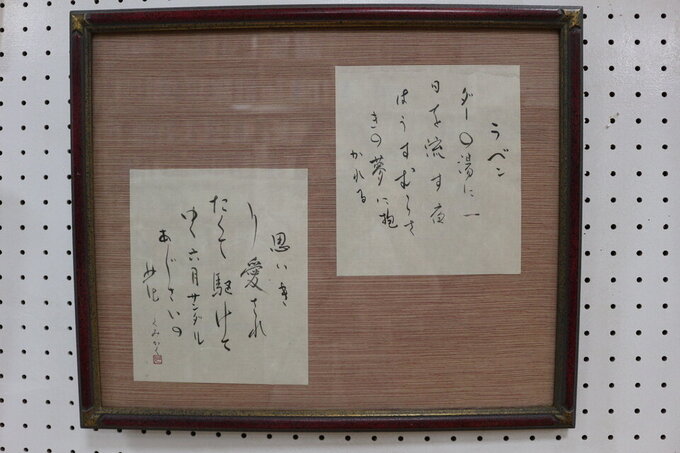 ラベン
ダーの湯に一
日を流す夜
はうすむらさ
きの夢に抱
かれる
思いき
り愛され
たくて駆けて
ゆく六月サンダル
あじさいの
花